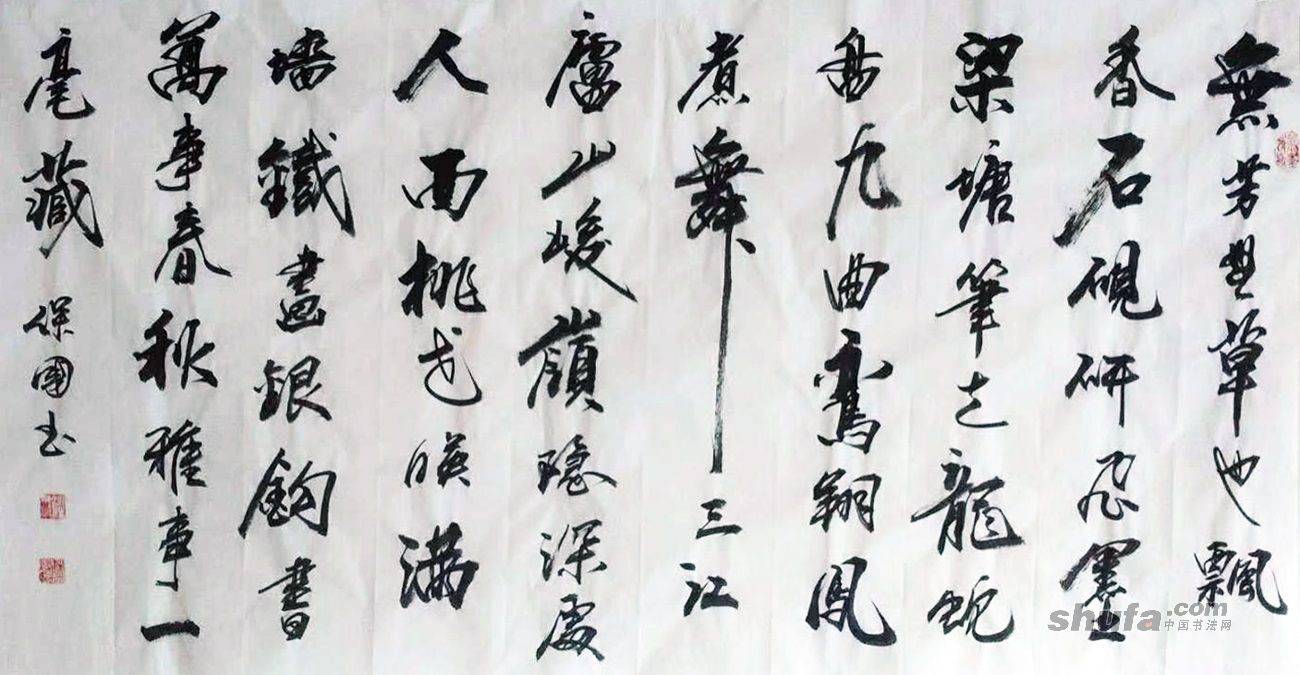 無芳無草也飄
香石硯研飛墨上
梁塘筆走龍蛇
舞九曲鸞翔鳳
煮舞三江
廬山峻嶺隱深處
人面桃花映滿
墻鐵畫銀鉤書
萬事春秋雅事一
毫藏
保國書
shufa.com
中国书法网